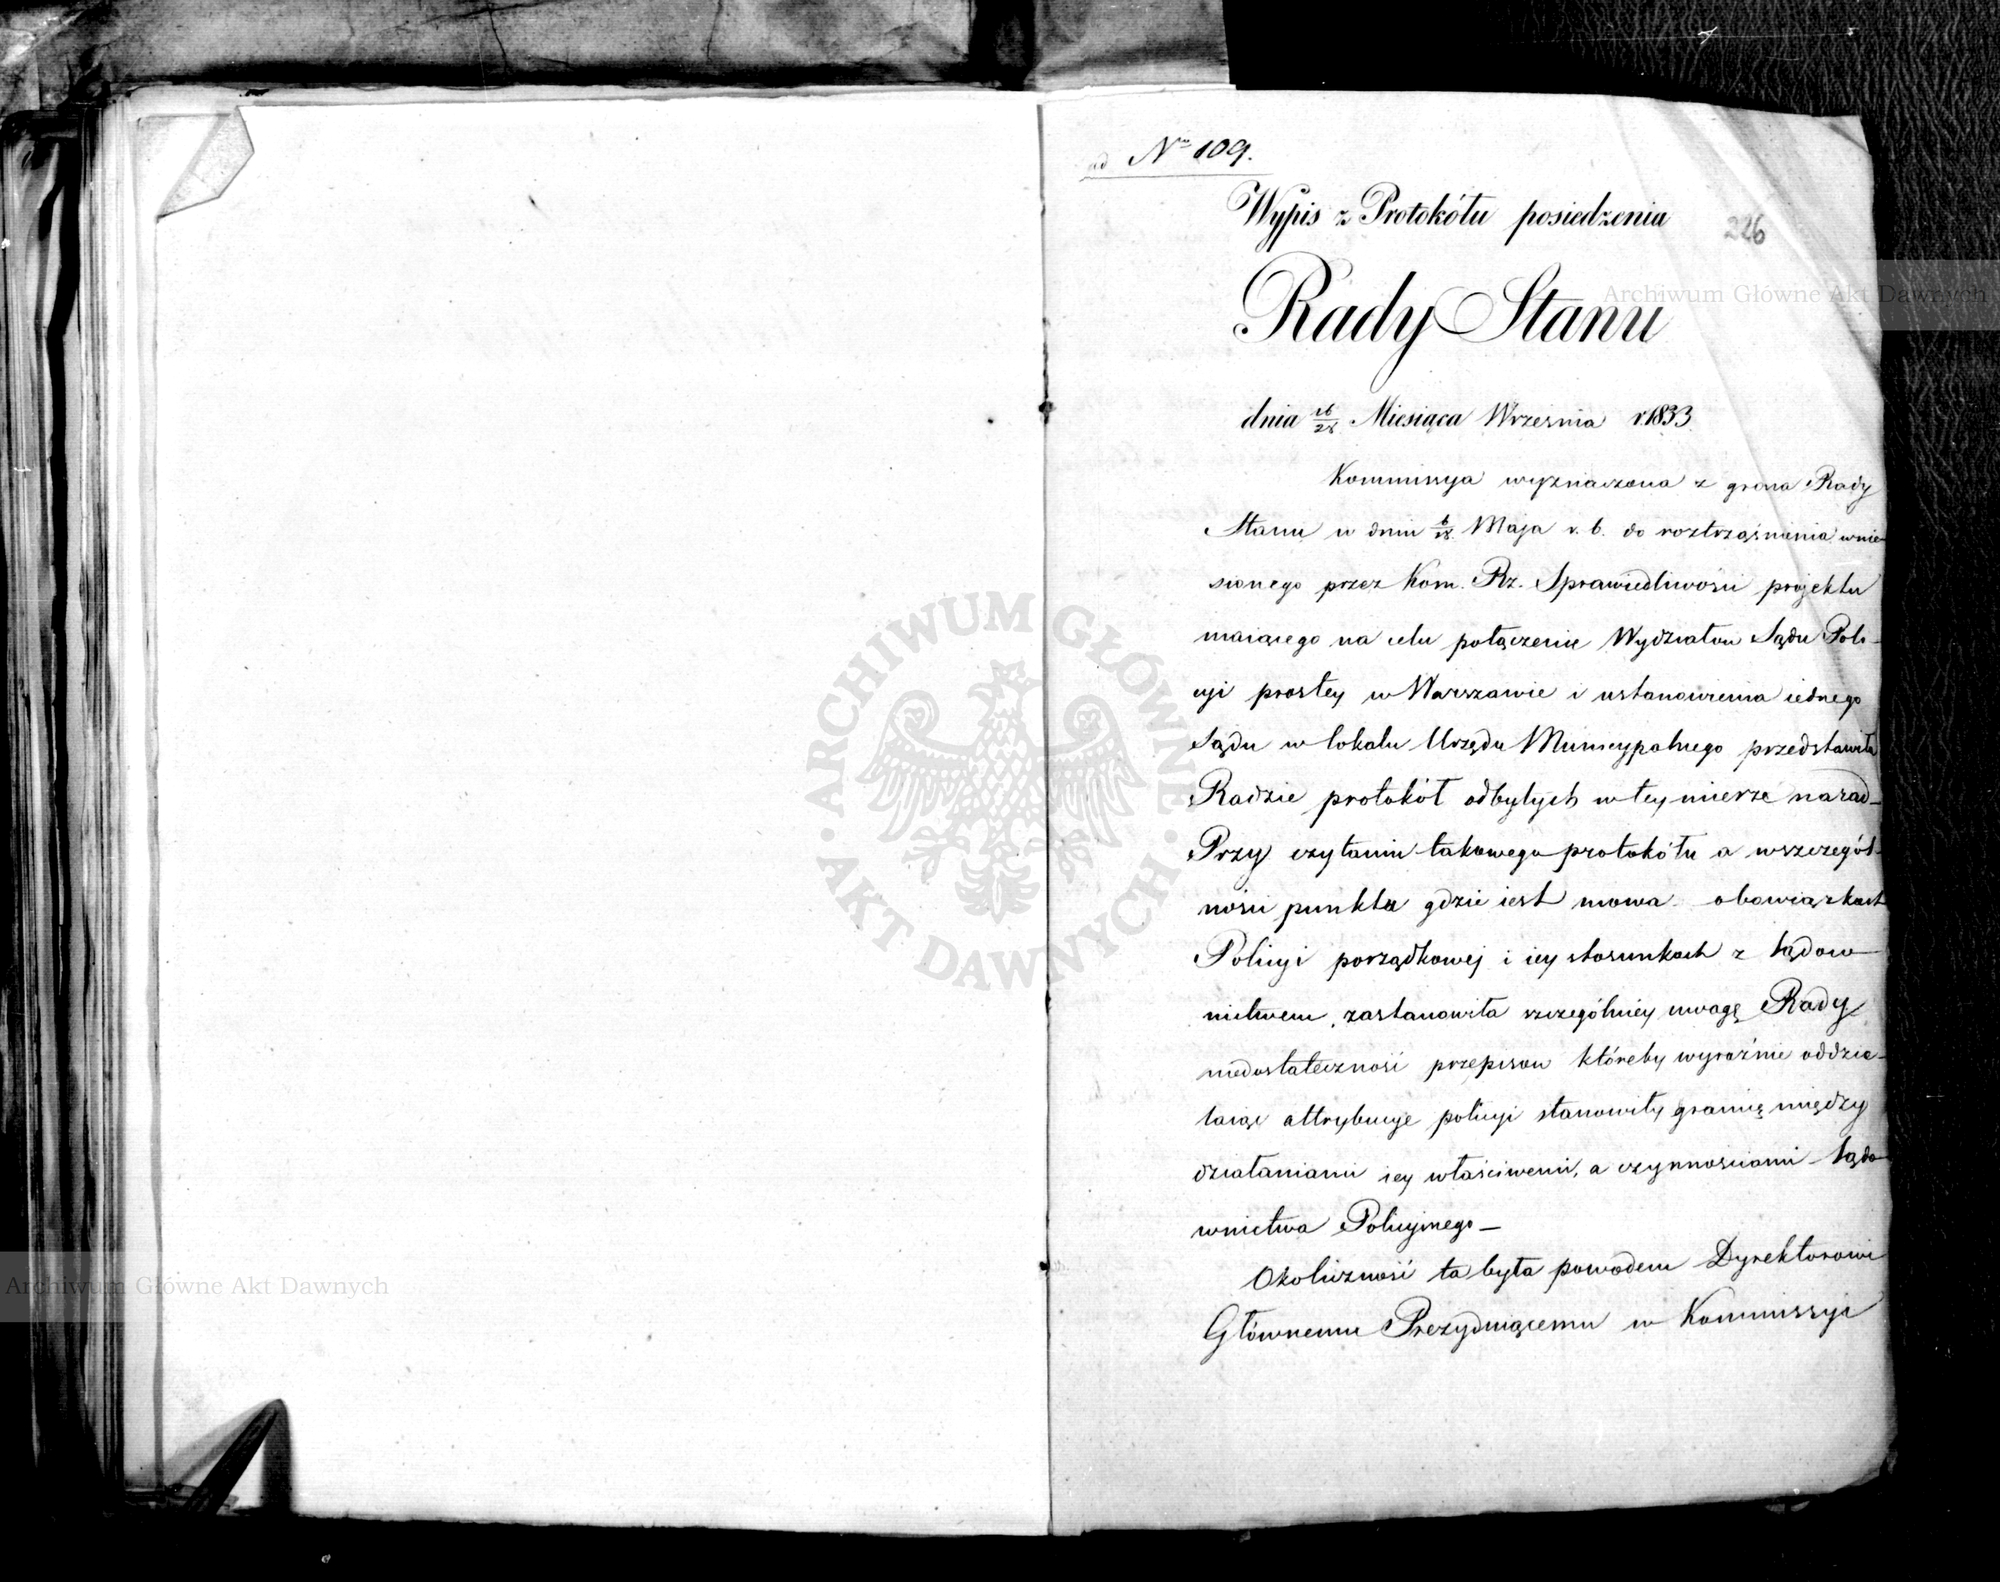 ad Nro 109.
Wypis z Protokółu posiedzenia
226
Rady Stanu
dnia 16/28 Miesiąca Września r. 1833
Kommissya wyznaczona z grona Rady
Stanu w dniu 6/18 Maja r. b. do roztrząśnienia wnie-
sionego przez Kom. Rz. Sprawiedliwości projektu
maiącego na celu połączenie Wydziałow Sądu Poli-
cyi prostey w Warszawie i ustanowienia iednego
Sądu w lokalu Urzędu Municypalnego przedstawiła
Radzie protokół odbytych w tey mierze narad_
Przy czytaniu takowego protokółu a wszczegól-
ności punktu gdzie iest mowa o obowiązkach
Policyi porządkowej i iey stosunkach z sądow-
nictwem, zastanowiła szczególniey uwagę Rady
niedostateczność przepisow któreby wyraźnie oddzie-
laiąc attrybucye policyi stanowiły granicę między
działaniami iey właściwemi, a czynnościami sądo-
wnictwa Policyinego_
Okoliczność ta była powodem Dyrektorowi
Głównemu Prezyduiącemu w Kommissyi
Archiwum Główne Akt Dawnych
ARCHIWUM GŁÓWNE AKT DAWNYCH
Archiwum Główne Akt Dawnych